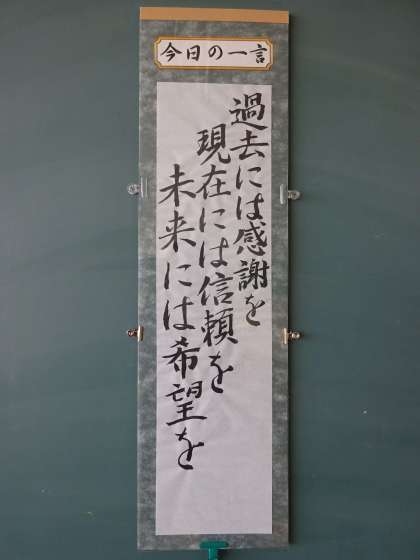 今日の一言
過去には感謝を
現在には信頼を
未来には希望を